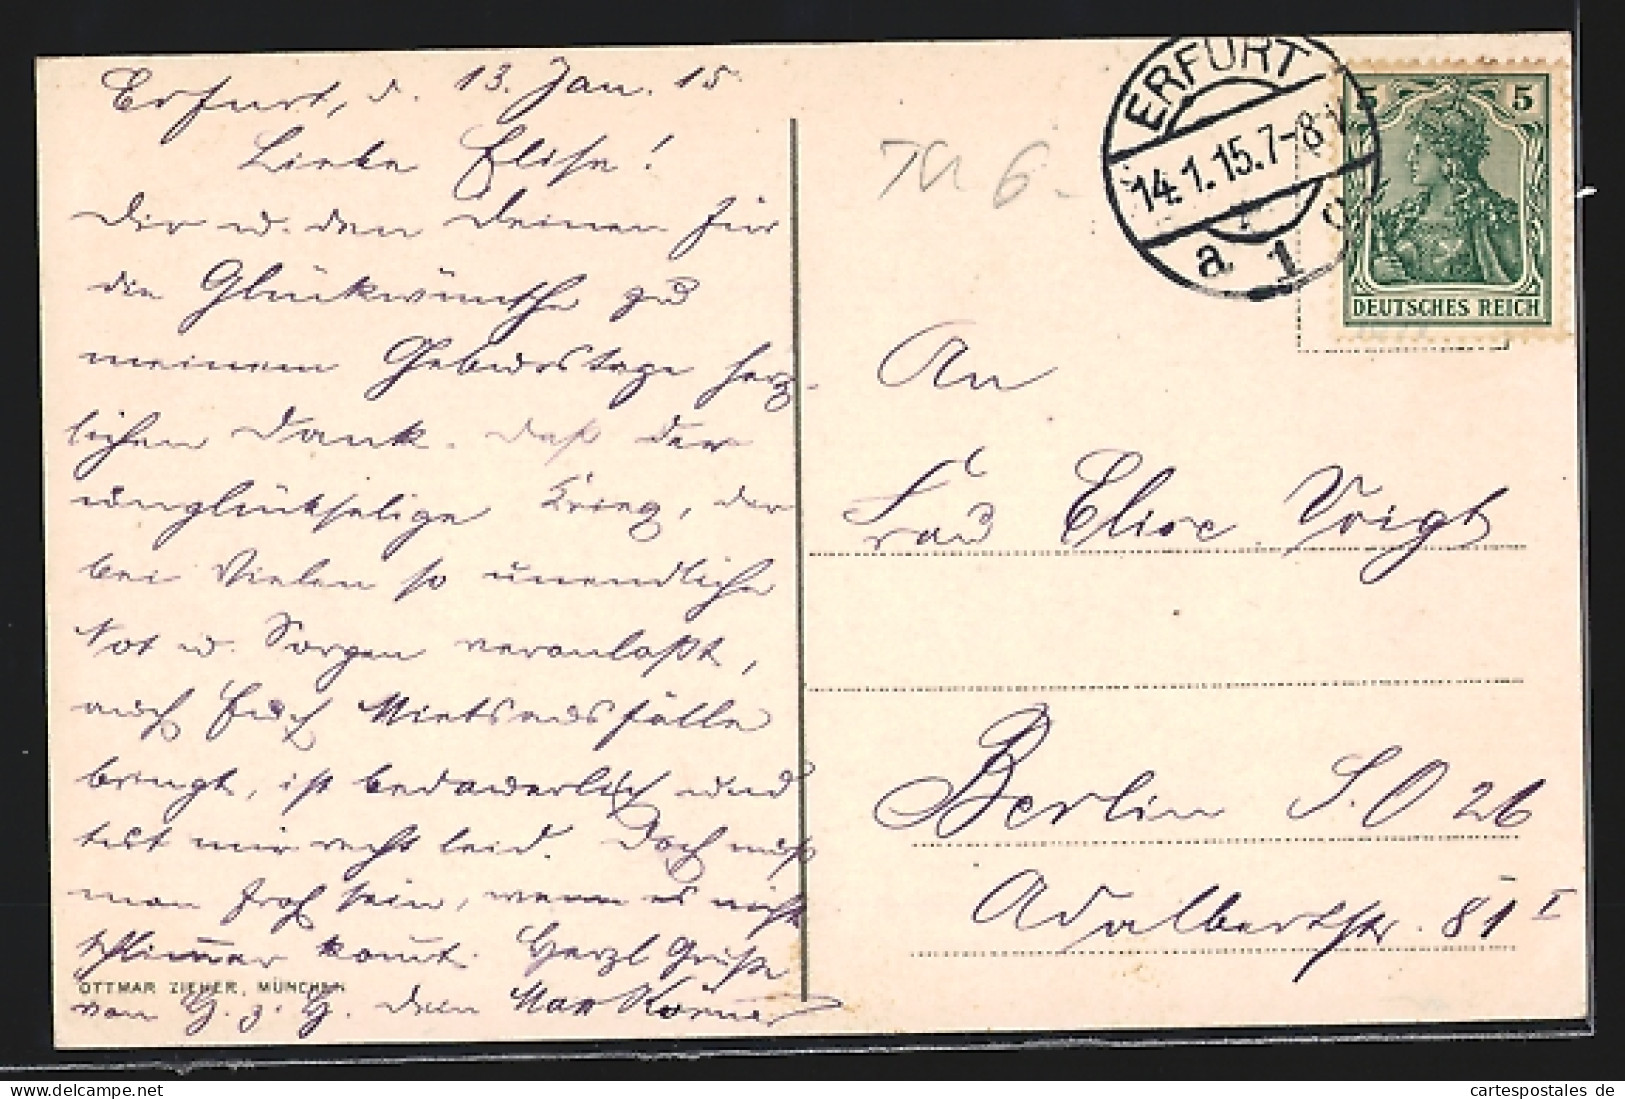 Erfurt, d. 13. Jan. 15
Liebe Elise!
Dir u. den Deinen für
die Glückwünsche zu
meinem Geburtstage herz-
lichen Dank. Daß der
unglückselige Krieg, der
bei Vielen so unendliche
Not u. Sorgen veranlaßt,
auch Euch Mietsausfälle
bringt, ist bedauerlich und
tut mir recht leid. Doch muß
man froh sein, wenn es nicht
schlimmer kommt. Herzl Grüße
von H. z. H. Dein Max Körner
OTTMAR ZIEHER, MÜNCHEN
ERFURT
14.1.15.7-8V
a 1 a
5 5
DEUTSCHES REICH
An
Frau Elise Voigt
Berlin S.O 26
Adalbertstr. 81 I
cartespostales de